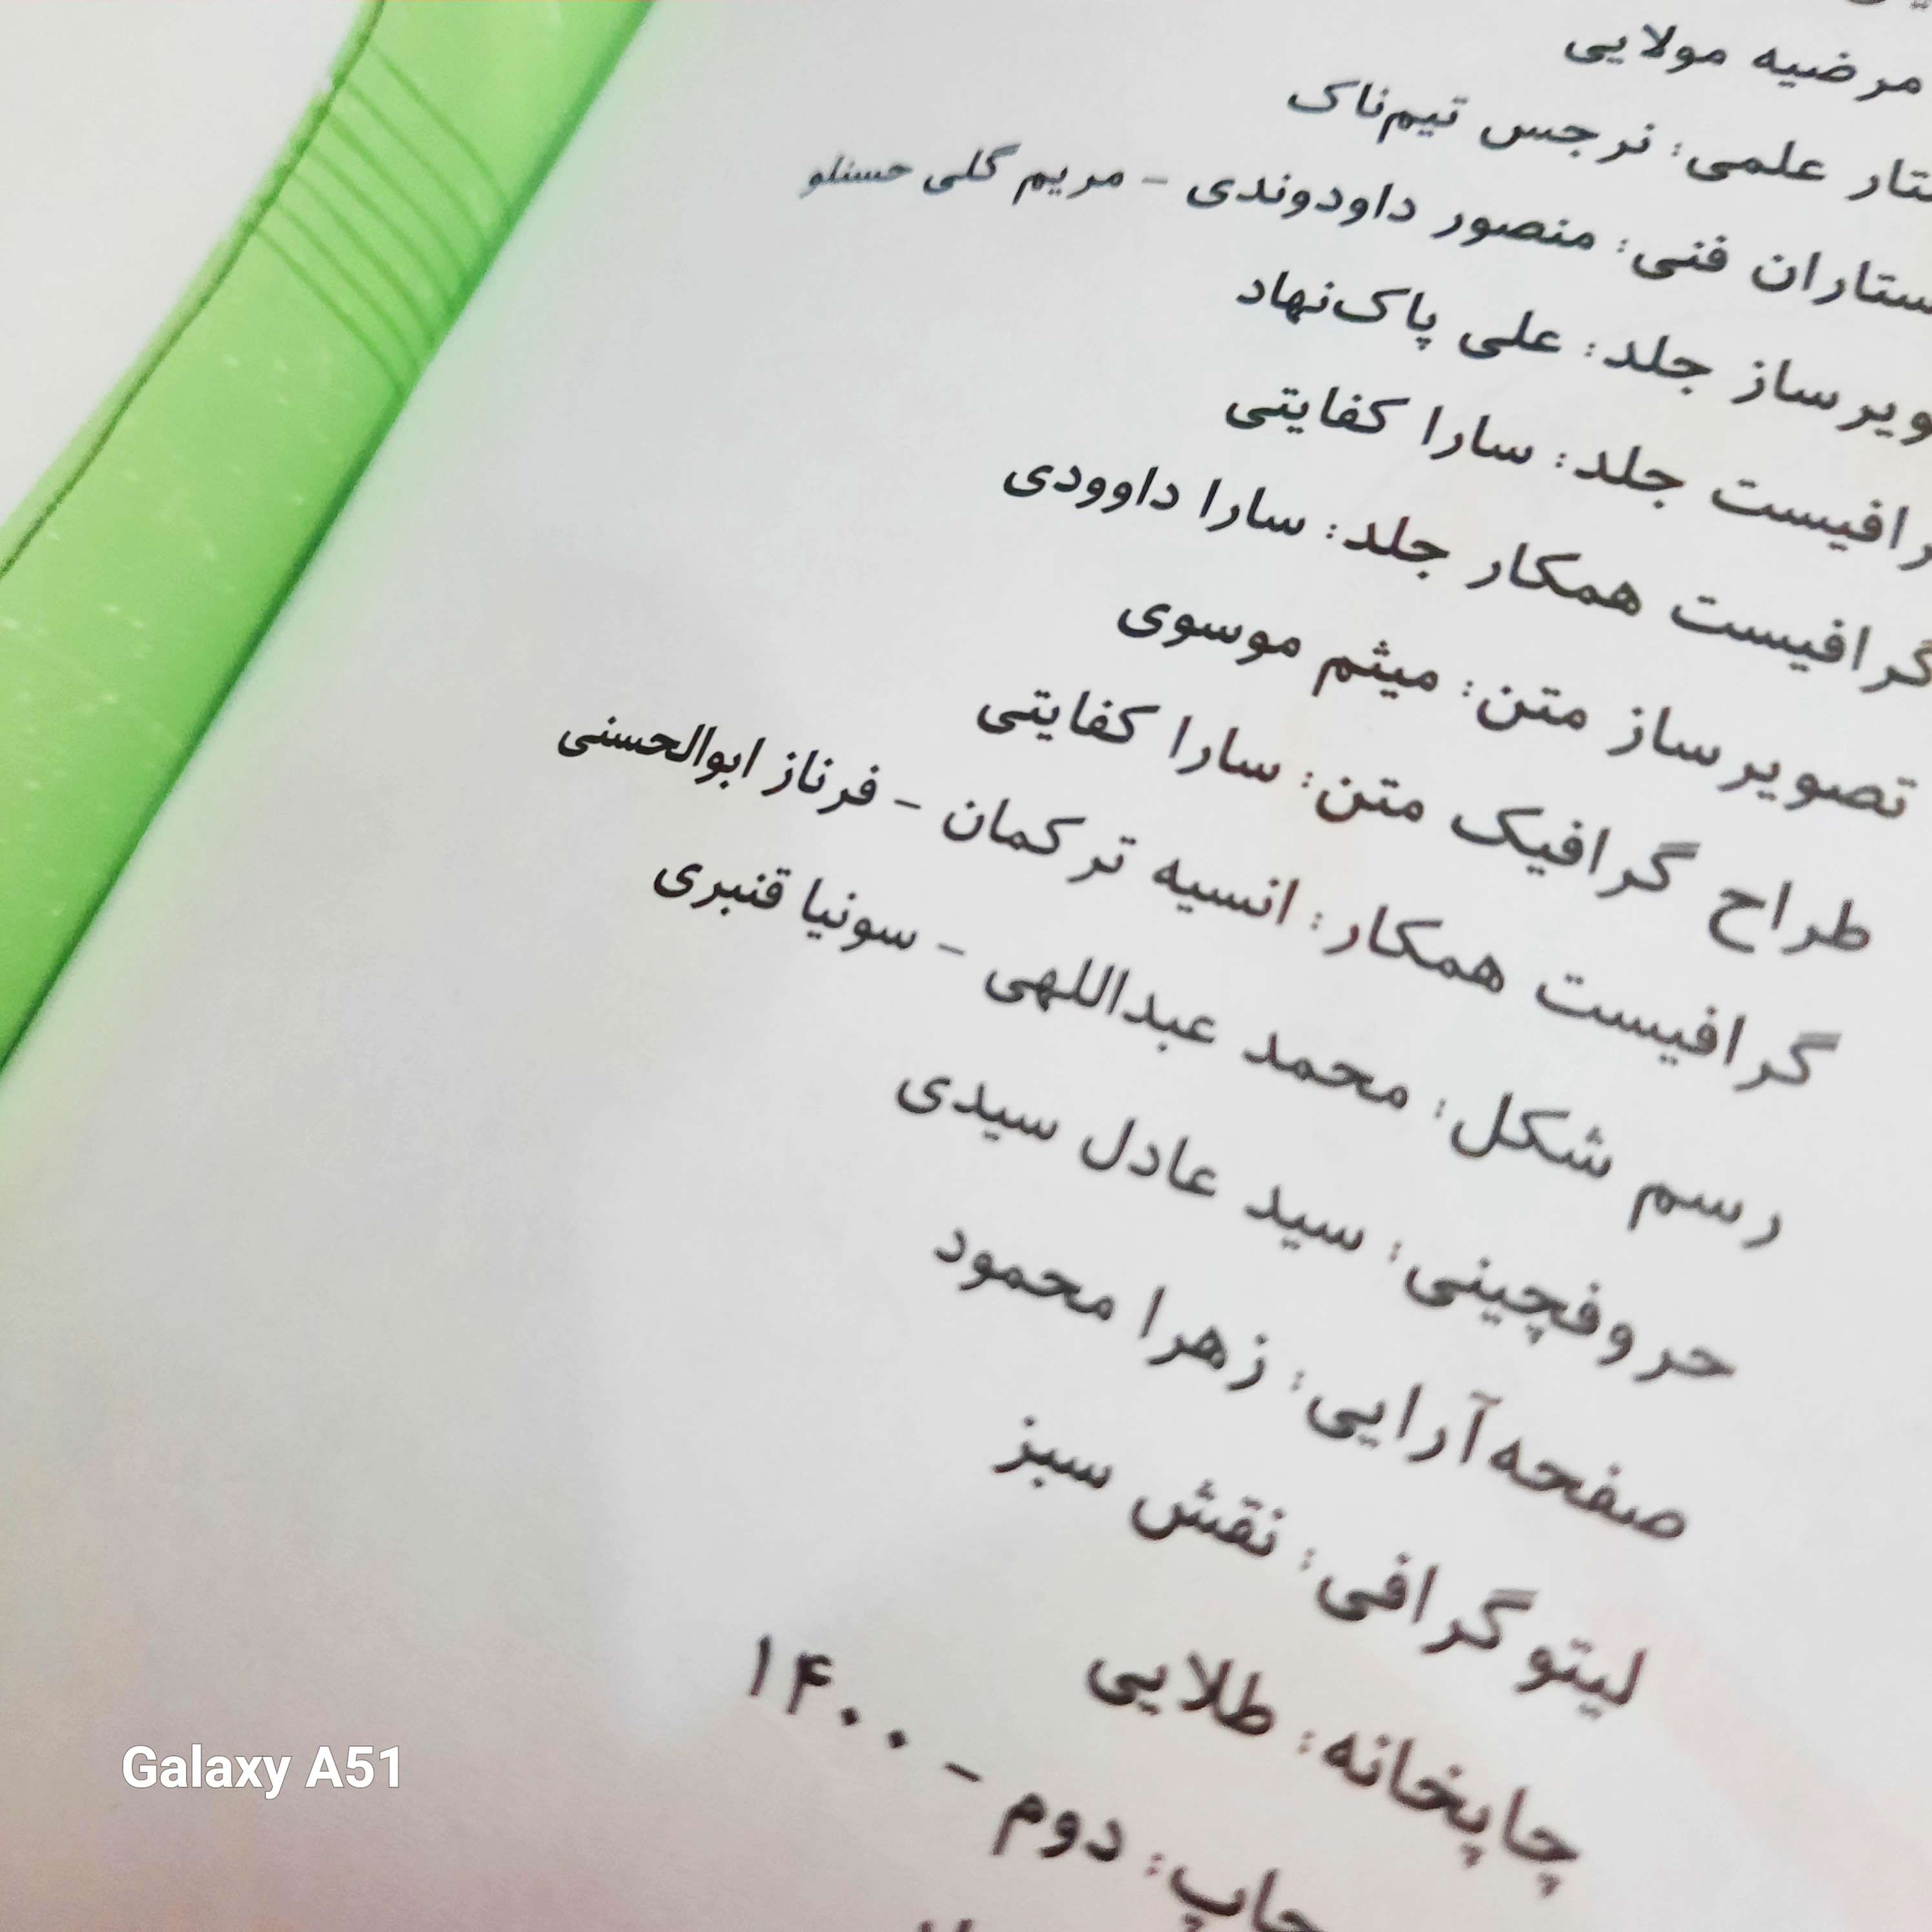 مرضیه مولایی
علمی: نرجس تیم‌ناک
فنی: منصور داودوندی - مریم گلی حسنلو
جلد: علی پاک‌نهاد
جلد: سارا کفایتی
گرافیست همکار جلد: سارا داوودی
تصویرساز متن: میثم موسوی
طراح گرافیک متن: سارا کفایتی
گرافیست همکار: انسیه ترکمان - فرناز ابوالحسنی
رسم شکل: محمد عبداللهی - سونیا قنبری
حروفچینی: سید عادل سیدی
صفحه‌آرایی: زهرا محمود
لیتوگرافی: نقش سبز
چاپخانه: طلایی
چاپ: دوم - ۱۴۰۰
Galaxy A51